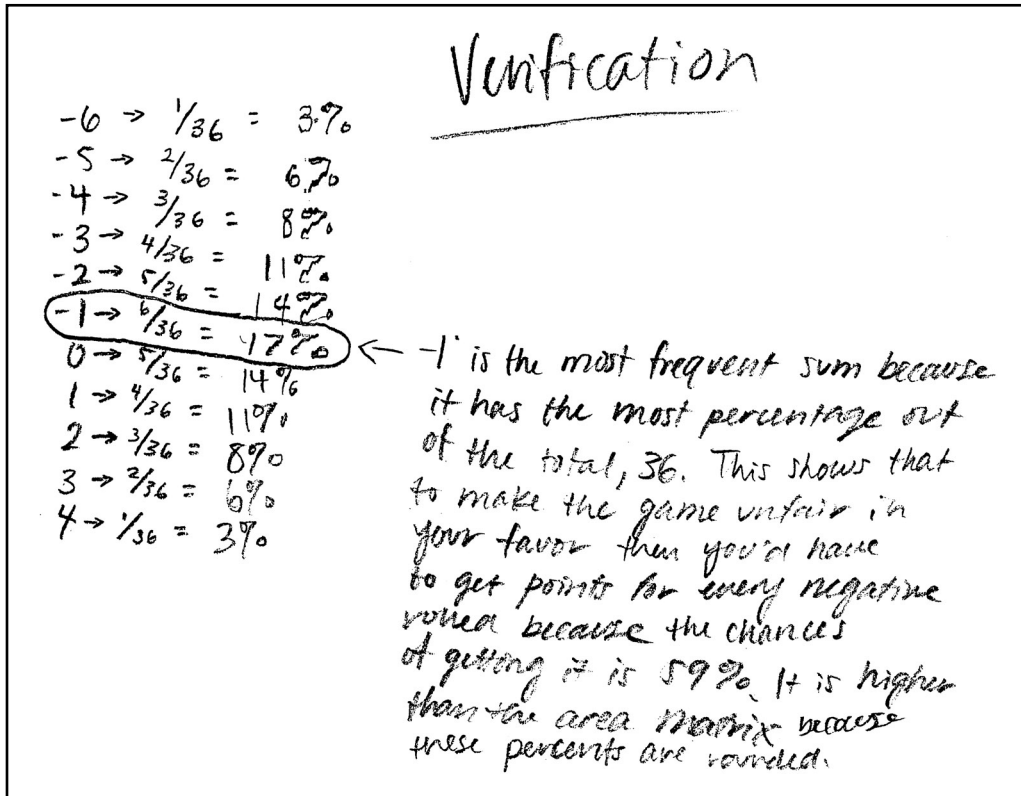 Verification
-6 → 1/36 = 3%
-5 → 2/36 = 6%
-4 → 3/36 = 8%
-3 → 4/36 = 11%
-2 → 5/36 = 14%
-1 → 6/36 = 17%
0 → 5/36 = 14%
1 → 4/36 = 11%
2 → 3/36 = 8%
3 → 2/36 = 6%
4 → 1/36 = 3%
← -1 is the most frequent sum because
it has the most percentage out
of the total, 36. This shows that
to make the game unfair in
your favor then you'd have
to get points for every negative
rolled because the chances
of getting it is 59%. It is higher
than the area matrix because
these percents are rounded.